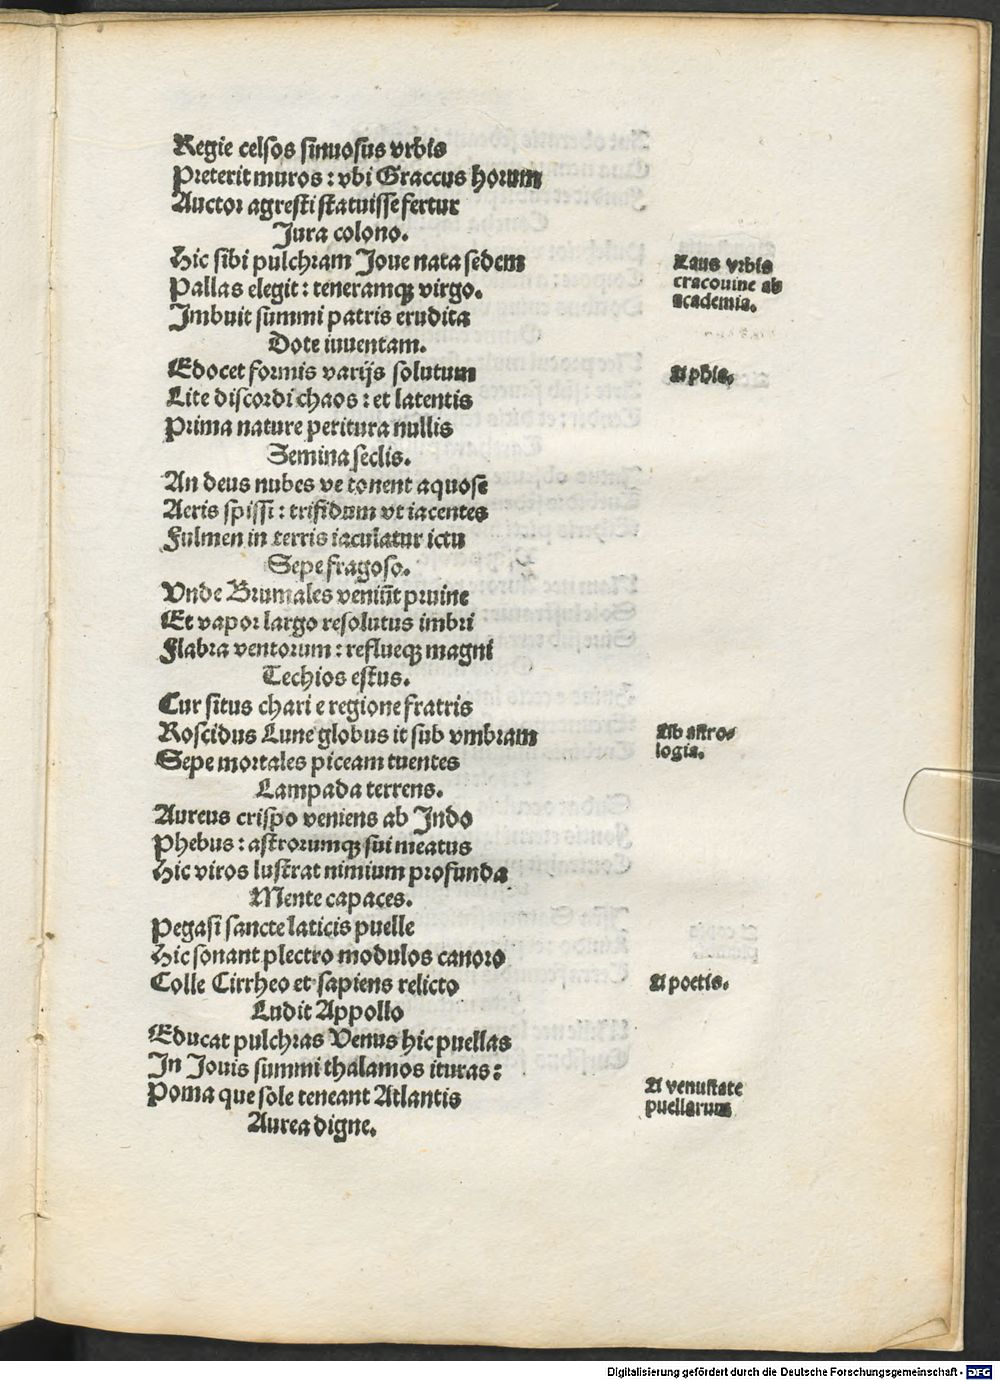 Regie celsos sinuosus vrbis
Preterit muros : vbi Graccus horum
Auctor agresti statuisse fertur
Jura colono.
Hic sibi pulchram Joue nata sedem
Pallas elegit : teneramqꝫ virgo.
Imbuit summi patris erudita
Dote iuuentam.
Edocet formis varijs solutum
Lite discordi chaos : et latentis
Prima nature peritura nullis
Semina seclis.
An deus nubes ve tonent aquose
Aeris spissi : trifidum vt iacentes
Fulmen in terris iaculatur ictu
Sepe fragoso.
Vnde Brumales veniūt pruine
Et vapor largo resolutus imbri
Flabra ventorum : reflueqꝫ magni
Techios estus.
Cur situs chari e regione fratris
Roscidus Lune globus it sub vmbram
Sepe mortales piceam tuentes
Lampada terrens.
Aureus crispo veniens ab Indo
Phebus : astrorumqꝫ sui meatus
Hic viros lustrat nimium profunda
Mente capaces.
Pegasi sancte laticis puelle
Hic sonant plectro modulos canoro
Colle Cirrheo et sapiens relicto
Ludit Appollo
Educat pulchras Venus hic puellas
In Jouis summi thalamos ituras :
Poma que sole teneant Atlantis
Aurea digne.
Laus vrbis
cracouine ab
academia.
A phia.
Ab astro-
logia.
A poetis.
A venustate
puellarum
Digitalisierung gefördert durch die Deutsche Forschungsgemeinschaft - DFG